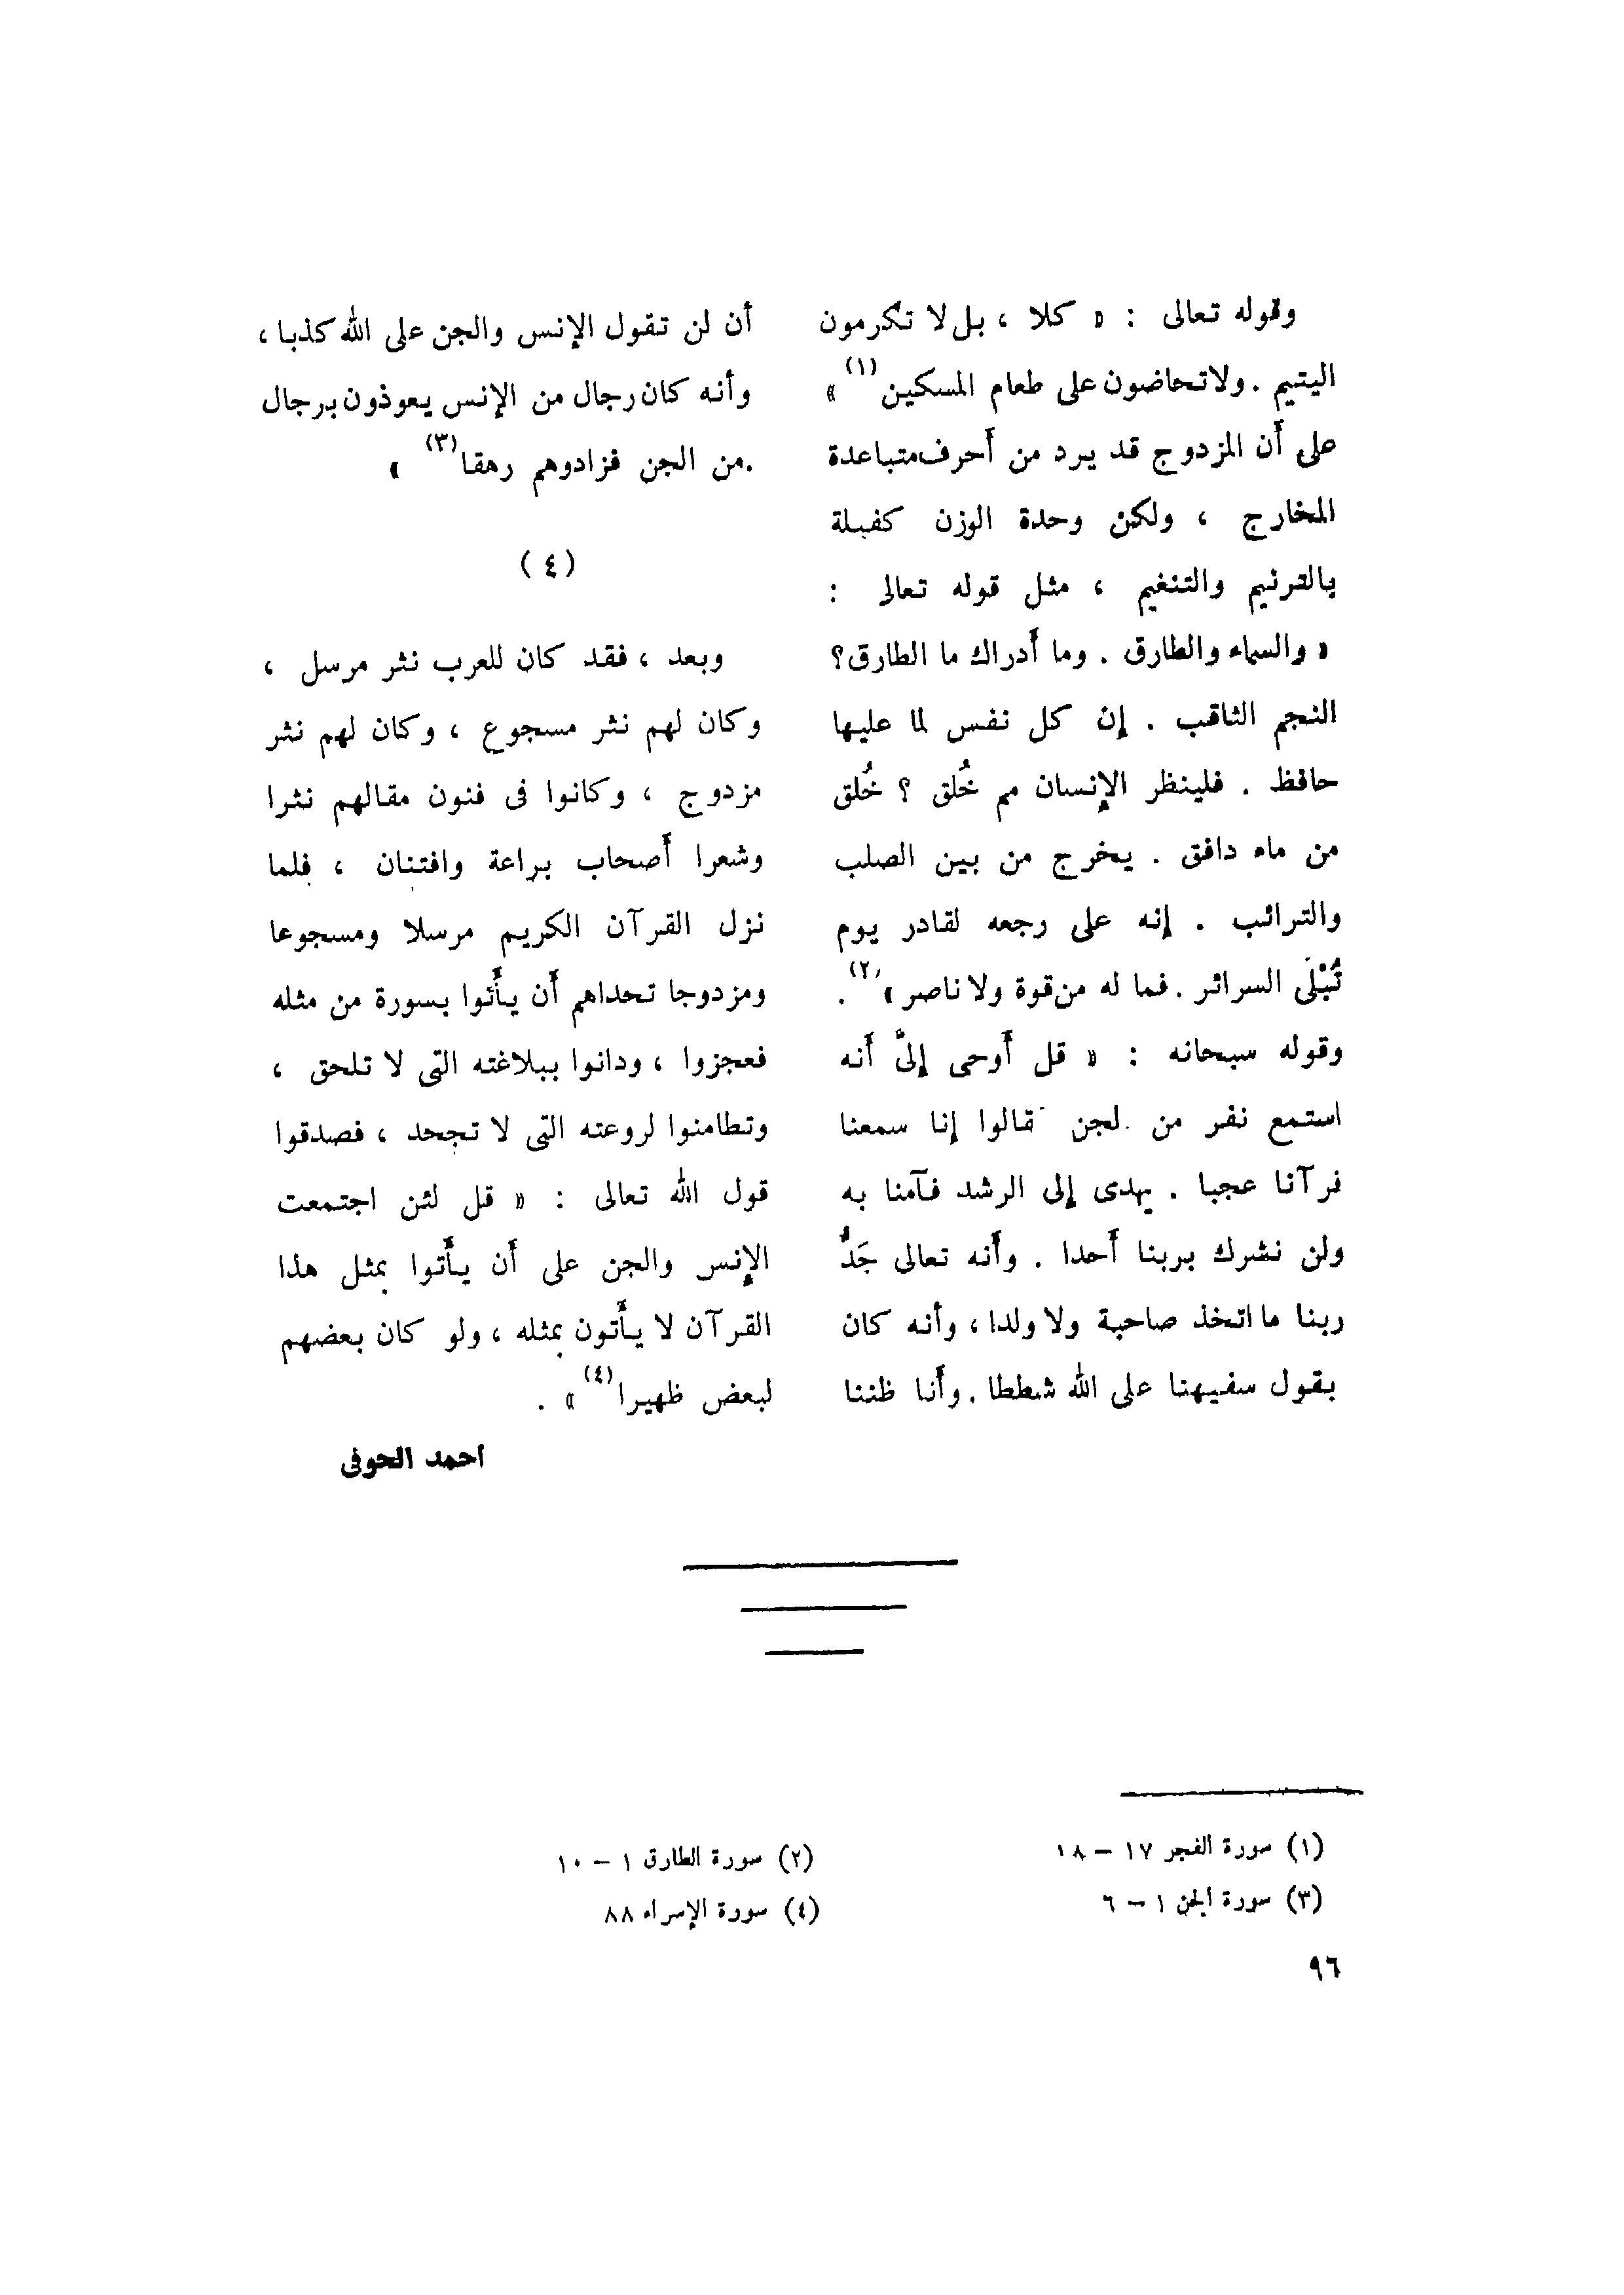 وقوله تعالى : « كلا ، بل لا تكرمون
اليتيم . ولا تحاضون على طعام المسكين (١) »
على أن المزدوج قد يرد من أحرف متباعدة
المخارج ، ولكن وحدة الوزن كفيلة
بالترنيم والتنغيم ، مثل قوله تعالى :
« والسماء والطارق . وما أدراك ما الطارق؟
النجم الثاقب . إن كل نفس لما عليها
حافظ . فلينظر الإنسان مم خُلق ؟ خُلق
من ماء دافق . يخرج من بين الصلب
والترائب . إنه على رجعه لقادر يوم
تُبْلَى السرائر . فما له من قوة ولا ناصر » (٢) .
وقوله سبحانه : « قل أوحى إلىَّ أنه
استمع نفر من الجن فقالوا إنا سمعنا
قرآنا عجبا . يهدى إلى الرشد فآمنا به
ولن نشرك بربنا أحدا . وأنه تعالى جَدُّ
ربنا ما اتخذ صاحبة ولا ولدا ، وأنه كان
يقول سفيهنا على الله شططا . وأنا ظننا
أن لن تقول الإنس والجن على الله كذبا ،
وأنه كان رجال من الإنس يعوذون برجال
من الجن فزادوهم رهقا (٣) »
( ٤ )
وبعد ، فقد كان للعرب نثر مرسل ،
وكان لهم نثر مسجوع ، وكان لهم نثر
مزدوج ، وكانوا فى فنون مقالهم نثرا
وشعرا أصحاب براعة وافتنان ، فلما
نزل القرآن الكريم مرسلا ومسجوعا
ومزدوجا تحداهم أن يأتوا بسورة من مثله
فعجزوا ، ودانوا ببلاغته التى لا تلحق ،
وتطامنوا لروعته التى لا تجحد ، فصدقوا
قول الله تعالى : « قل لئن اجتمعت
الإنس والجن على أن يأتوا بمثل هذا
القرآن لا يأتون بمثله ، ولو كان بعضهم
لبعض ظهيرا (٤) » .
احمد الحوفى
(١) سورة الفجر ١٧ – ١٨
(٢) سورة الطارق ١ – ١٠
(٣) سورة الجن ١ – ٦
(٤) سورة الإسراء ٨٨
٩٦